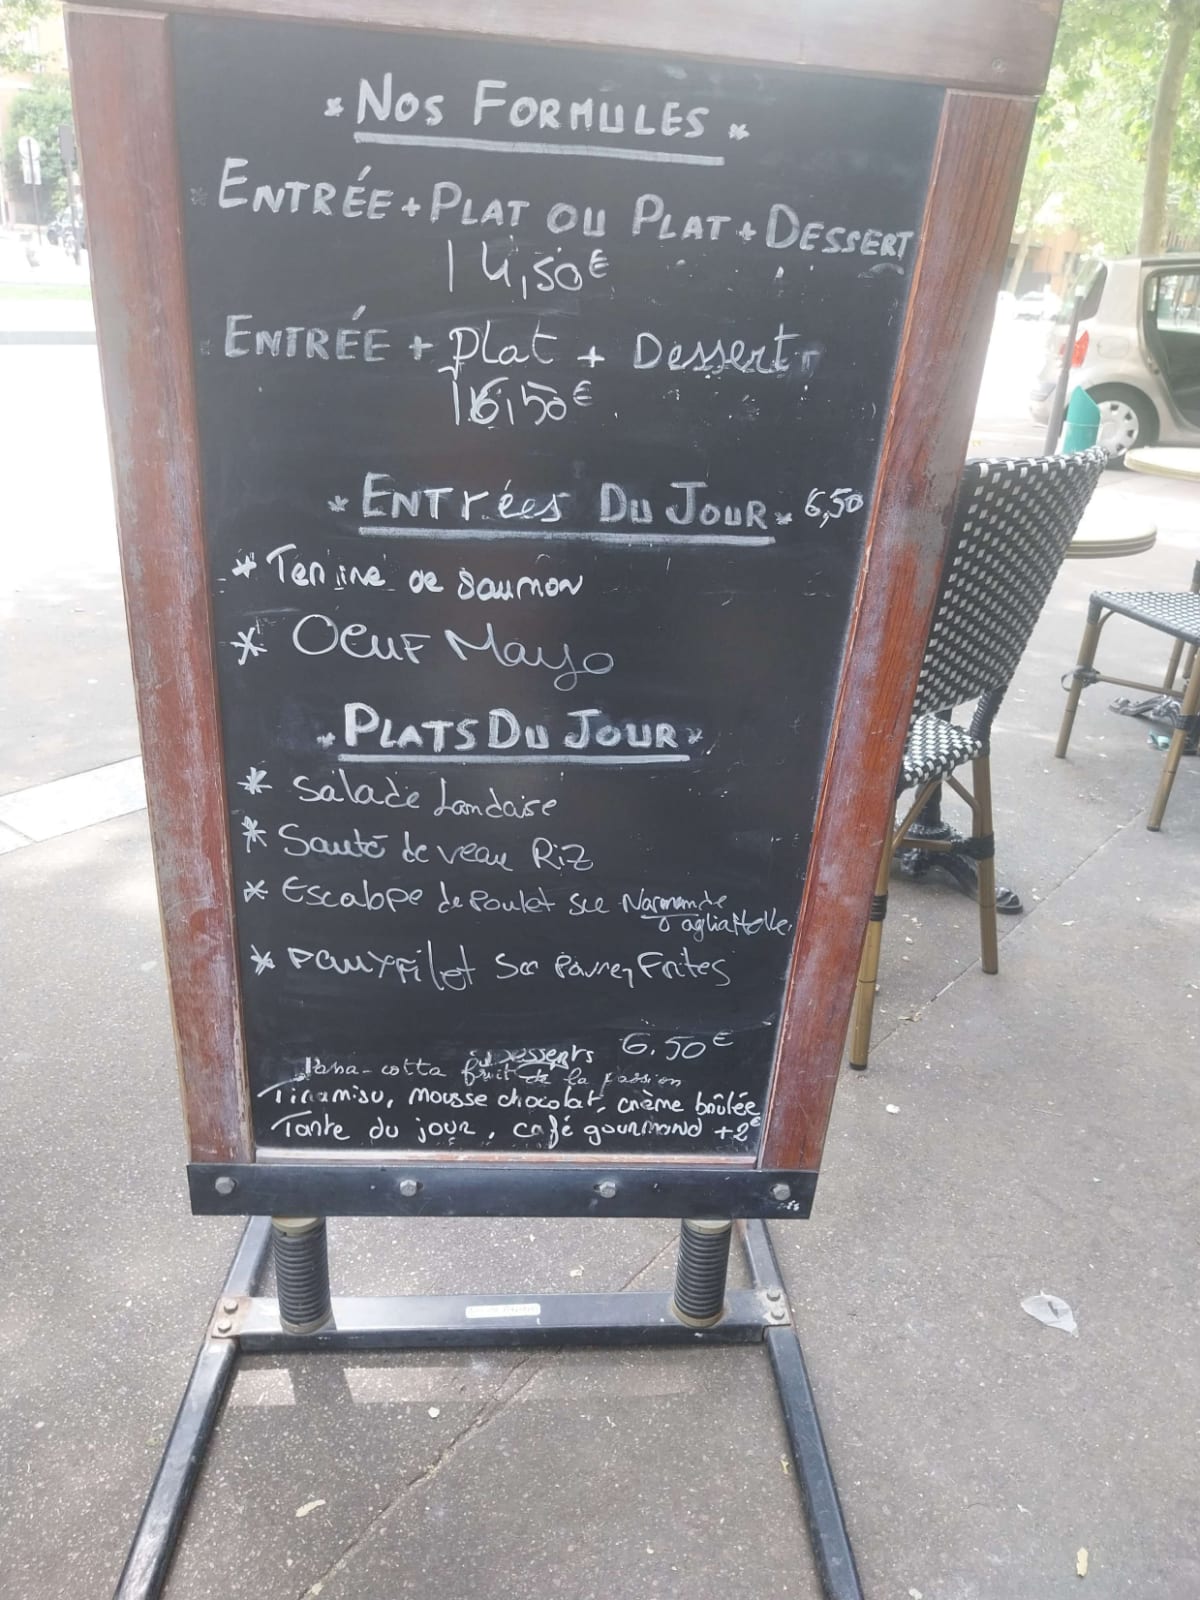 * Nos FORMULES *
* ENTRÉE + PLAT OU PLAT + DESSERT
14,50€
ENTRÉE + Plat + Dessert
16,50€
* ENTrées DU JOUR * 6,50
* Terrine de saumon
* OEUF Mayo
* PLATS DU JOUR *
* Salade Landaise
* Sauté de veau RiZ
* Escalope de Poulet sce Normande
Tagliattelle
* FauxFilet Sce Poivre, Frites
Desserts 6.50€
Pana-cotta fruit de la passion
Tiramisu, mousse chocolat, crème brûlée
Tarte du jour, café gourmand +2€